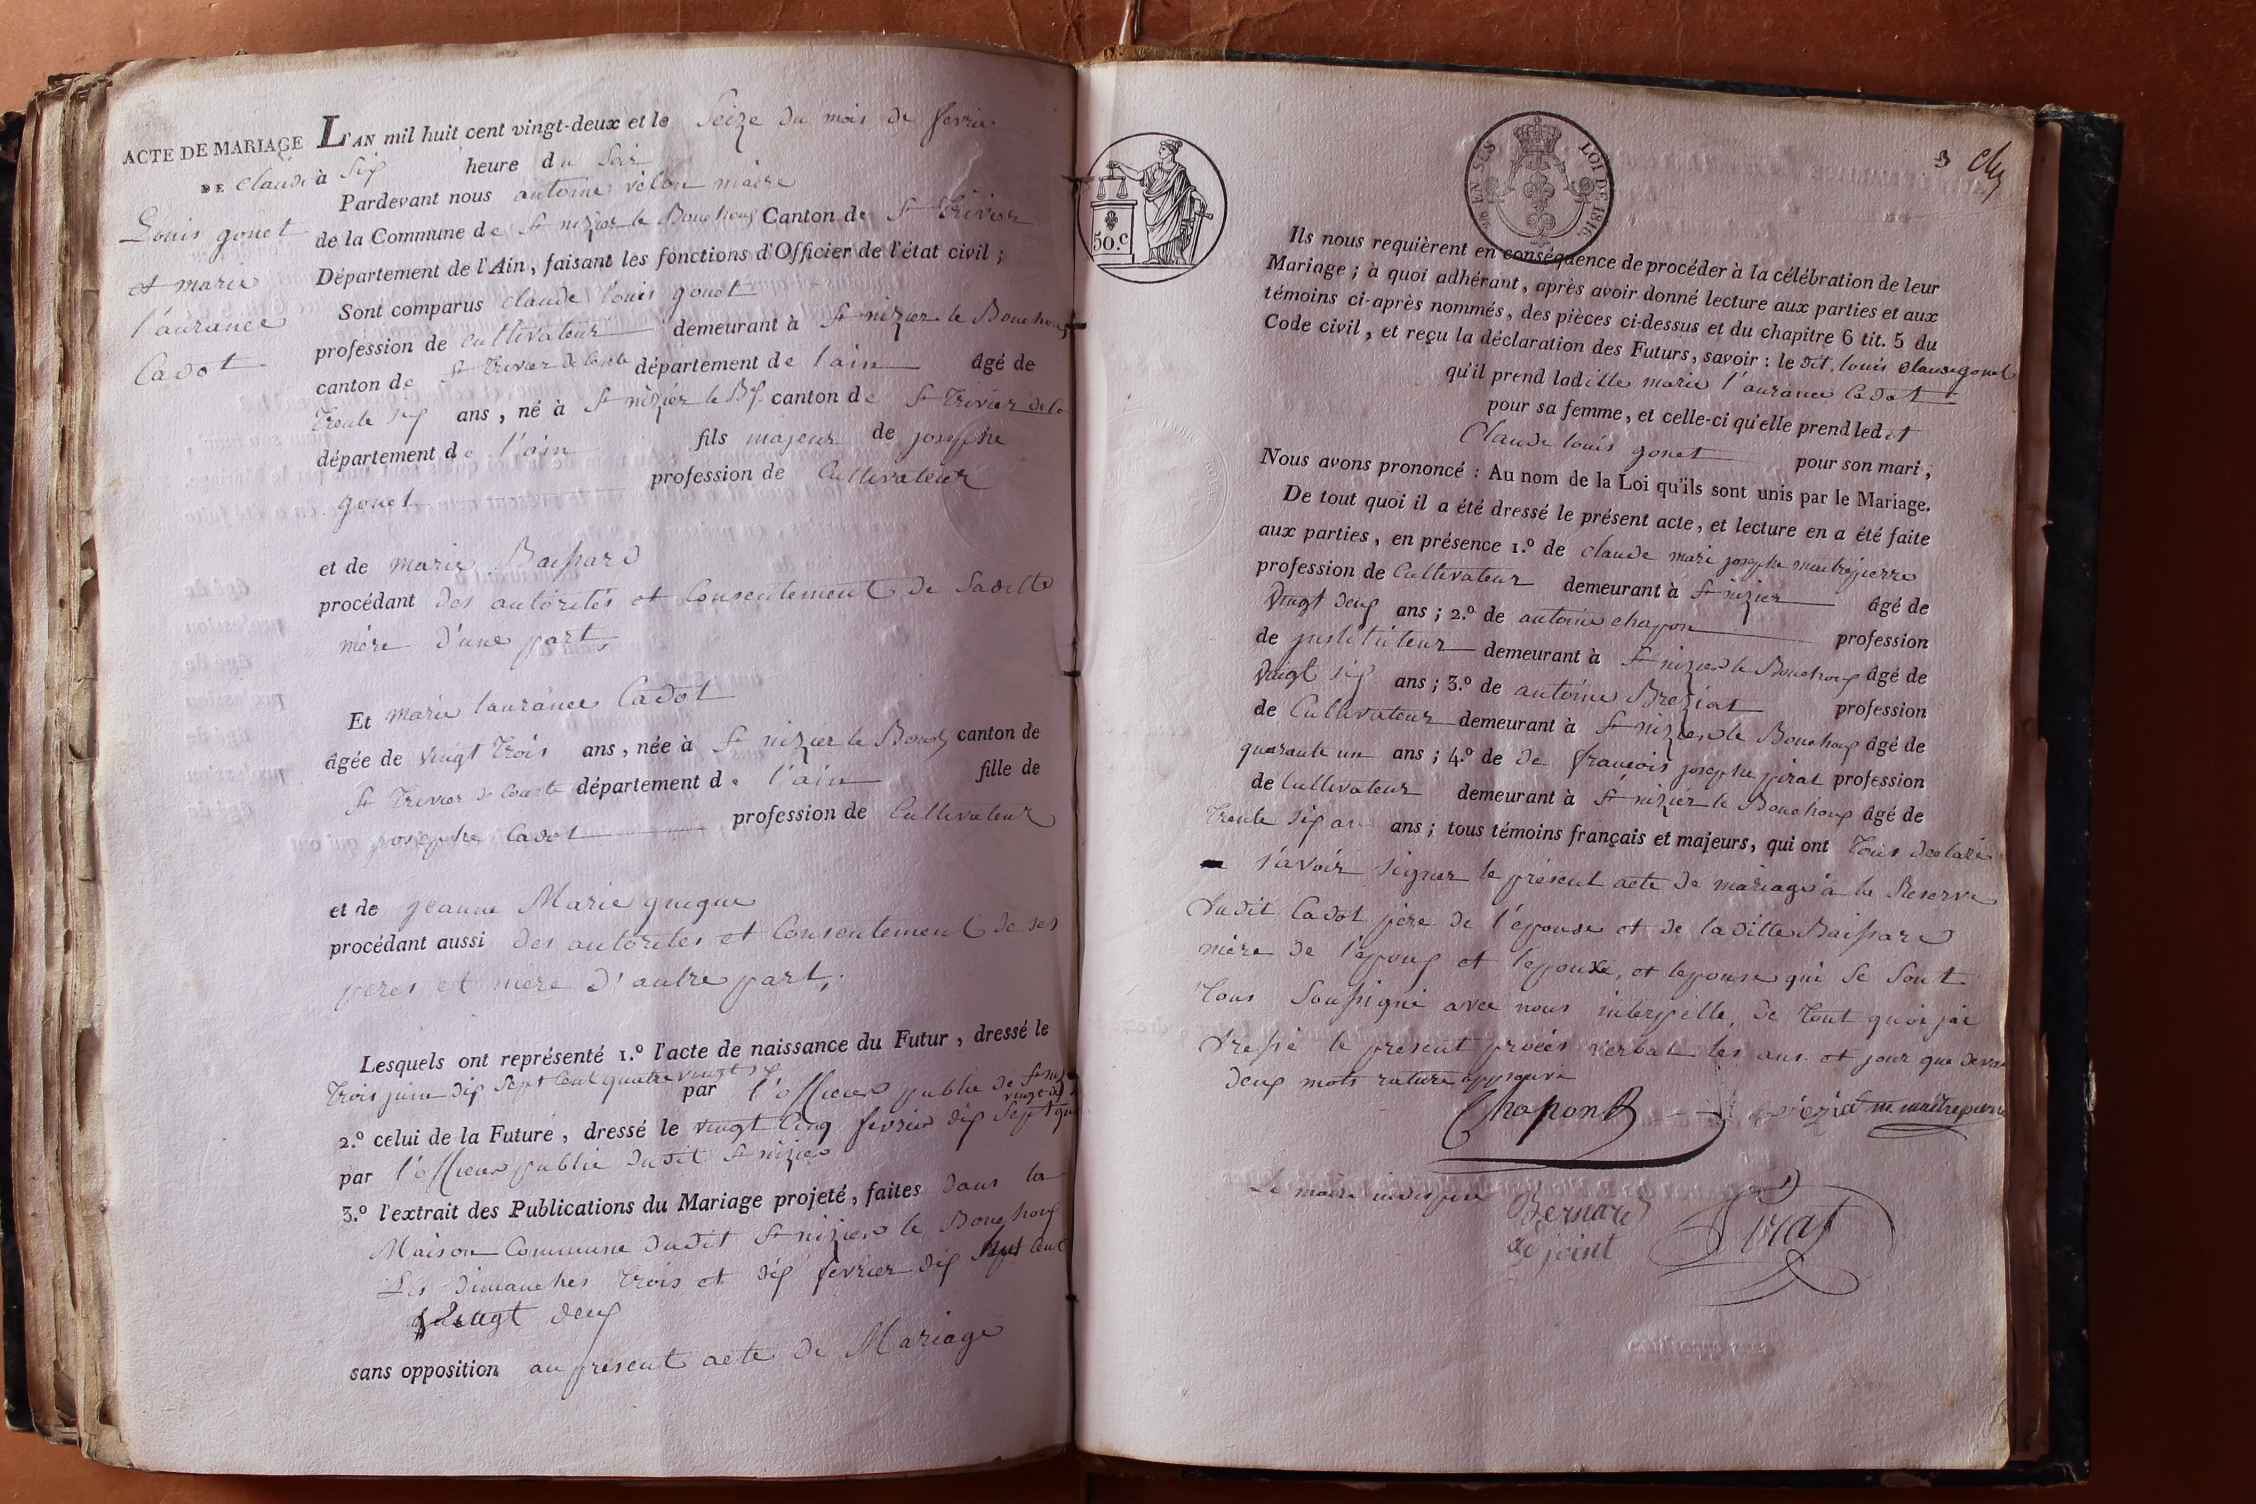 ACTE DE MARIAGE
DE Claude
Louis gonet
et marie
l'aurance
Cadot
L'AN mil huit cent vingt-deux et le Seize du mois de fevrier
à Six heure du Soir
Pardevant nous antoine vélon maire
de la Commune de St nizier le Bouchoux Canton de St Trivier
Département de l'Ain, faisant les fonctions d'Officier de l'état civil;
Sont comparus claude louis gonet
profession de Cultivateur demeurant à St nizier le Bouchoux
canton de St Trivier de Courte département de l'ain âgé de
Trente six ans, né à St nizier le Bx canton de St Trivier de Co
département de l'ain fils majeur de josephe
gonet profession de Cultivateur
et de marie Baissard
procédant des autorités et Consentement de Saditte
mère d'une part
Et marie laurance Cadot
âgée de vingt Trois ans, née à St nizier le Boux canton de
St Trivier de Courte département de l'ain fille de
josephe Cadot profession de Cultivateur
et de jeanne Marie guigue
procédant aussi des autorites et Consentement de ses
peres et mere d'autre part,
Lesquels ont représenté 1.º l'acte de naissance du Futur, dressé le
Trois juin dix Sept Cent quatre vingt six par l'officier public de St niz
2.º celui de la Future, dressé le vingt Cinq fevrier dix Sept qua
par l'officier public dudit St nizier
3.º l'extrait des Publications du Mariage projeté, faites dans la
Maison Commune dudit St nizier le Bouchoux
Les Dimanches Trois et dix fevrier dix huit Cent
vingt deux
sans opposition au present acte de Mariage
50.c
EN SUS
LOI DE 1816.
3
Ils nous requièrent en conséquence de procéder à la célébration de leur
Mariage; à quoi adhérant, après avoir donné lecture aux parties et aux
témoins ci-après nommés, des pièces ci-dessus et du chapitre 6 tit. 5 du
Code civil, et reçu la déclaration des Futurs, savoir: le dit. louis Claude gonet
qu'il prend laditte marie l'aurance Cadot
pour sa femme, et celle-ci qu'elle prend ledit
Claude louis gonet pour son mari;
Nous avons prononcé: Au nom de la Loi qu'ils sont unis par le Mariage.
De tout quoi il a été dressé le présent acte, et lecture en a été faite
aux parties, en présence 1.º de claude marie josephe maitrepierre
profession de Cultivateur demeurant à St nizier âgé de
Vingt deux ans; 2.º de antoine chapon profession
de jnstituteur demeurant à St nizier le Bouchoux âgé de
Vingt six ans; 3.º de antoine Breziat profession
de Cultivateur demeurant à St nizier le Bouchoux âgé de
quarante un ans; 4.º de de francois josephe pirat profession
de Cultivateur demeurant à St nizier le Bouchoux âgé de
Trente six an ans; tous témoins français et majeurs, qui ont Tous declaré
s'avoir signer le présent acte de mariage à la Reserve
dudit Cadot père de l'epouse et de laditte Baissard
mère de l'epoux et lepouxe, et lepouse qui se sont
Tous Soussigné avec nous interpellé, De Tout quoi jai
dressé le present procés verbal les ans et jour que devan
deux mots rature approuvé
Chapon Breziat m maitrepierre
Le maire indisposé Bernard
adjoint
Pirat